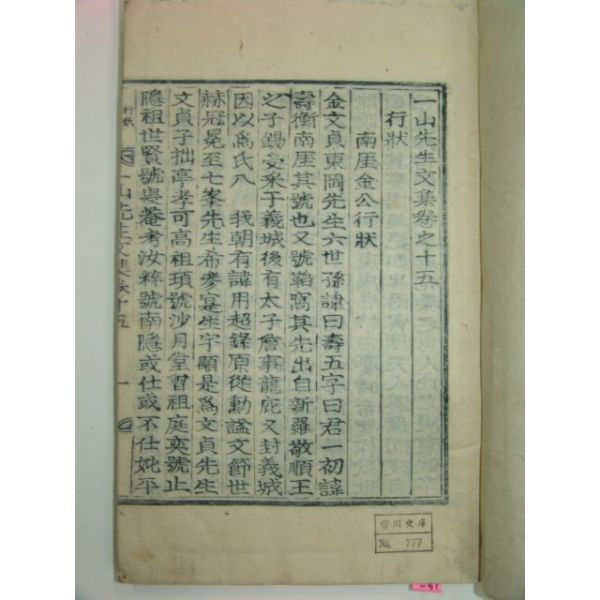 一山先生文集卷之十五
行狀
南厓金公行狀
金文貞東岡先生六世孫諱曰壽五字曰君一初諱
壽衡南厓其號也又號韜窩其先出自新羅敬順王
之子錫受采于義城後有太子詹事龍庇又封義城
因以爲氏八 我朝有諱用超錄原從勳謚文節世
赫冠冕至七峯先生希參寔生宇顒是爲文貞先生
文貞子拙亭孝可高祖頊號沙月堂曾祖庭奕號止
隱祖世賢號 菴考汝粹號南隱或仕或不仕妣平
行狀 一山先生文集卷十五 一
雷川文庫
No. 777